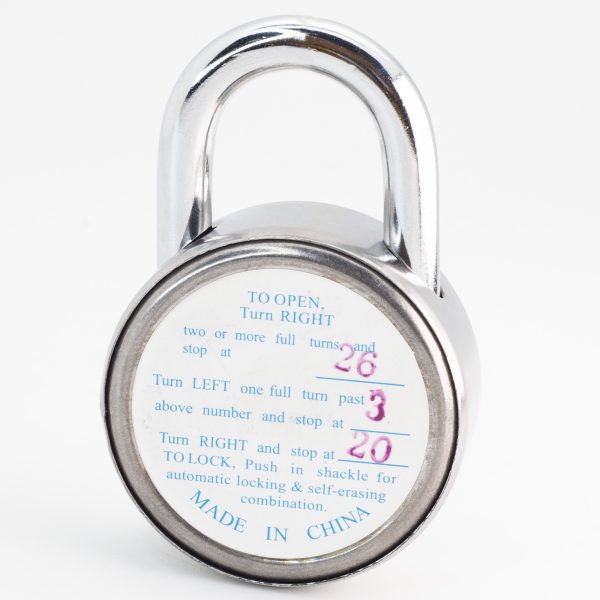 TO OPEN,
Turn RIGHT
two or more full turns and
stop at 26
Turn LEFT one full turn past
above number and stop at 3
Turn RIGHT and stop at 20
TO LOCK, Push in shackle for
automatic locking & self-erasing
combination.
MADE IN CHINA